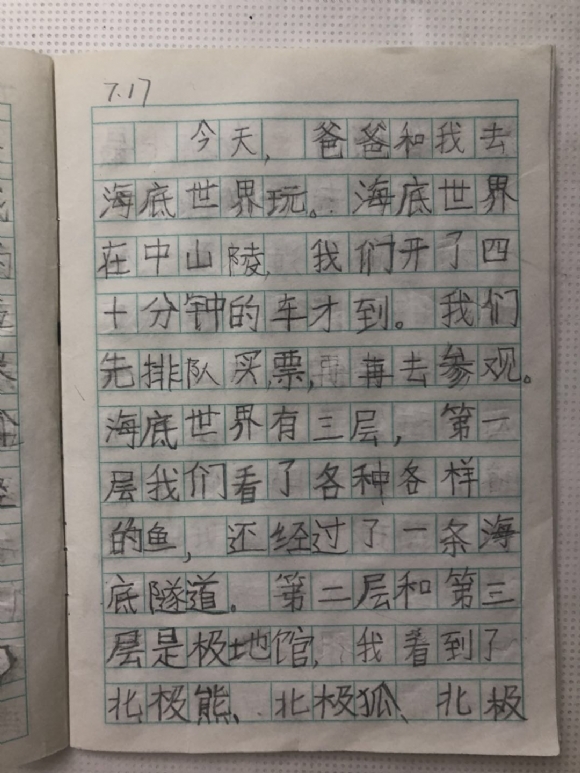 7.17
今天，爸爸和我去
海底世界玩。海底世界
在中山陵，我们开了四
十分钟的车才到。我们
先排队买票，再去参观。
海底世界有三层，第一
层我们看了各种各样
的鱼，还经过了一条海
底隧道。第二层和第三
层是极地馆，我看到了
北极熊、北极狐、北极